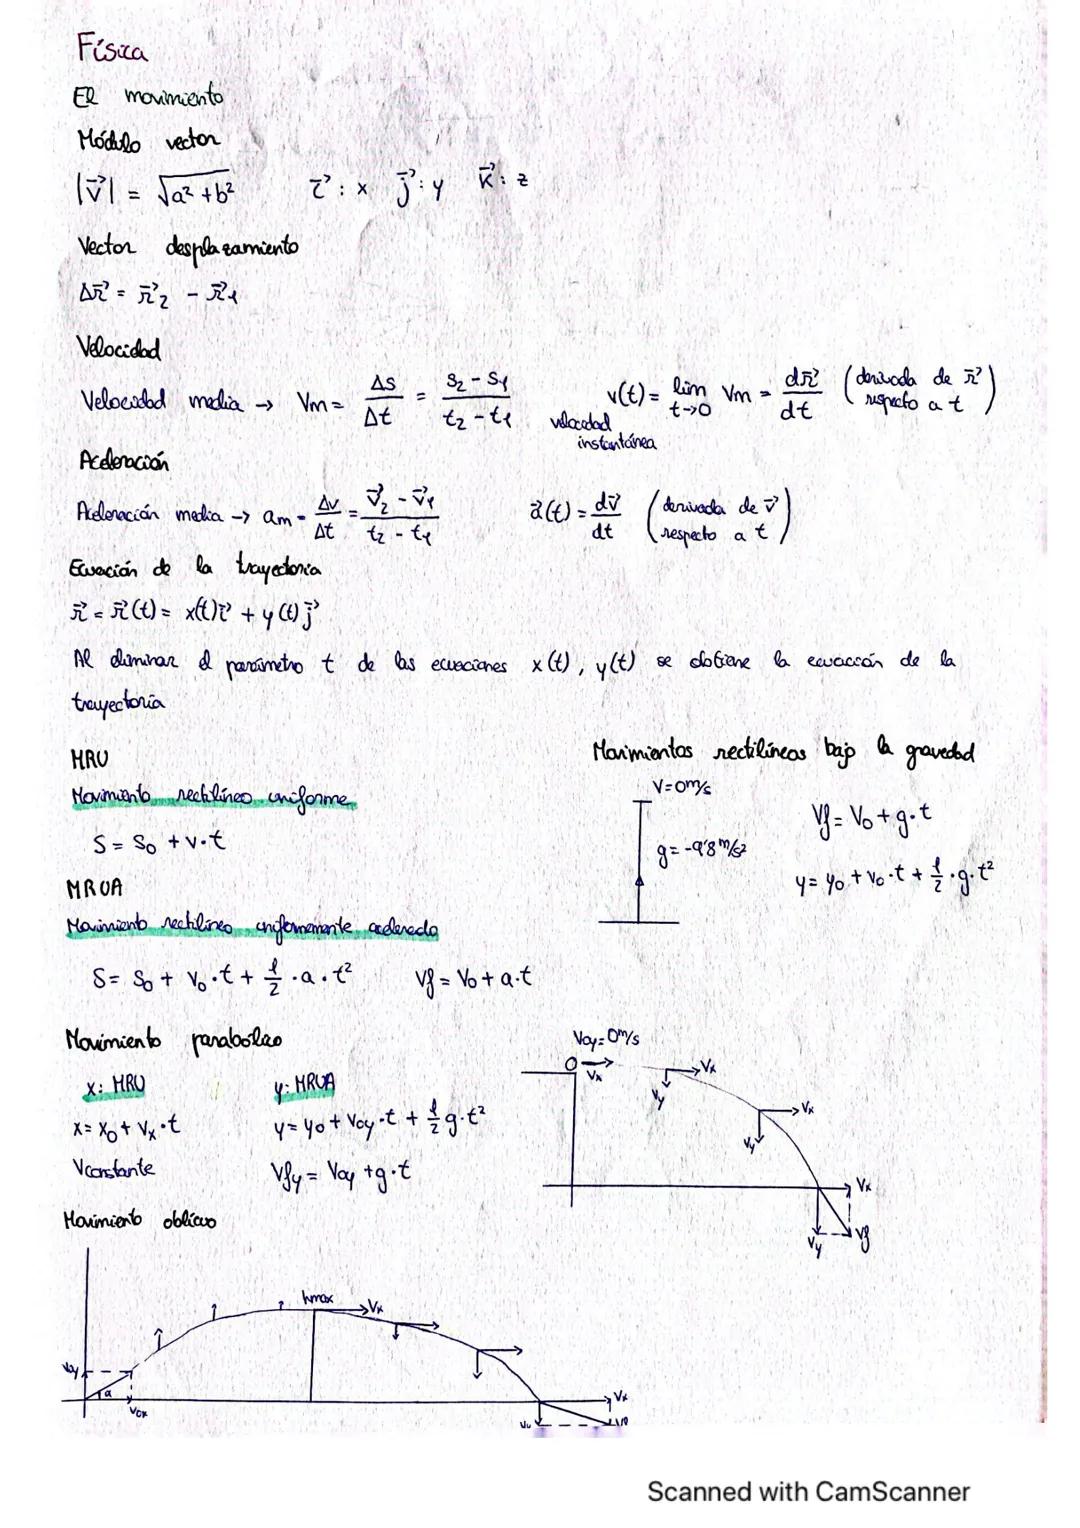 Física
El movimiento
Módulo vector
|v⃗| = √a² + b²    i⃗ : x  j⃗ : y  k⃗ : z
Vector desplazamiento
Δr⃗ = r⃗₂ - r⃗₁
Velocidad
Velocidad media → Vm = Δs/Δt = (s₂ - s₁)/(t₂ - t₁)    v(t) = lim t→0 Vm = dr⃗/dt (derivada de r⃗ respecto a t)
velocidad
instantánea
Aceleración
Aceleración media → am = Δv/Δt = (v⃗₂ - v⃗₁)/(t₂ - t₁)    a⃗(t) = dv⃗/dt (derivada de v⃗ respecto a t)
Ecuación de la trayectoria
r⃗ = r⃗(t) = x(t)i⃗ + y(t)j⃗
Al eliminar el parámetro t de las ecuaciones x(t), y(t) se obtiene la ecuación de la
trayectoria
MRU
Movimiento rectilíneo uniforme
S = S₀ + v·t
MRUA
Movimiento rectilíneo uniformemente acelerado
S = S₀ + V₀·t + 1/2·a·t²    Vf = V₀ + a·t
Movimientos rectilíneos bajo la gravedad
V=0m/s
g = -9'8 m/s²
Vf = V₀ + g·t
y = y₀ + V₀·t + 1/2·g·t²
Movimiento parabólico
x: MRU    y: MRUA
x = x₀ + Vx·t    y = y₀ + V₀y·t + 1/2 g·t²
V constante    Vfy = V₀y + g·t
V₀y = 0m/s
Vx
Vx
Vy
Vx
Vy
Vx
Vy
Vf
Movimiento oblícuo
hmax
Vx
V₀y
α
V₀x
Vx
Scanned with CamScanner